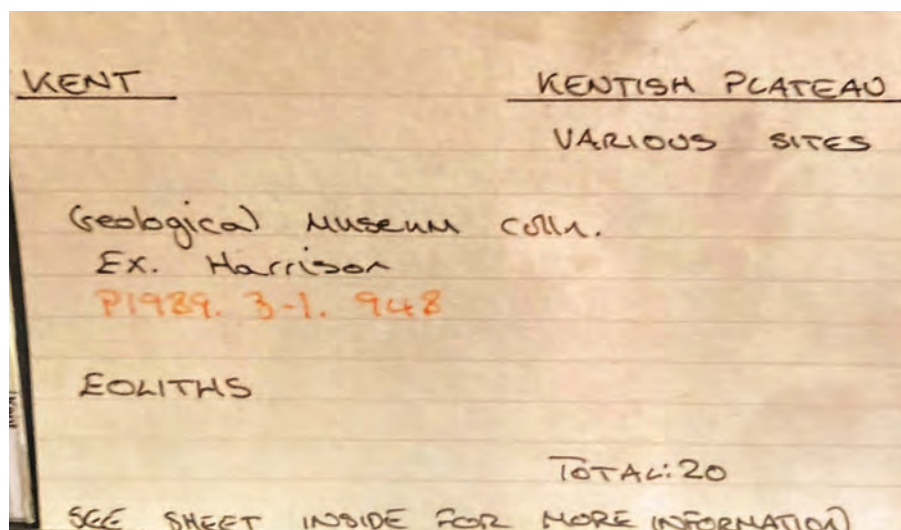 KENT KENTISH PLATEAU
VARIOUS SITES
Geological Museum Colln.
Ex. Harrison
P1989. 3-1. 948
EOLITHS
TOTAL: 20
SEE SHEET INSIDE FOR MORE INFORMATION